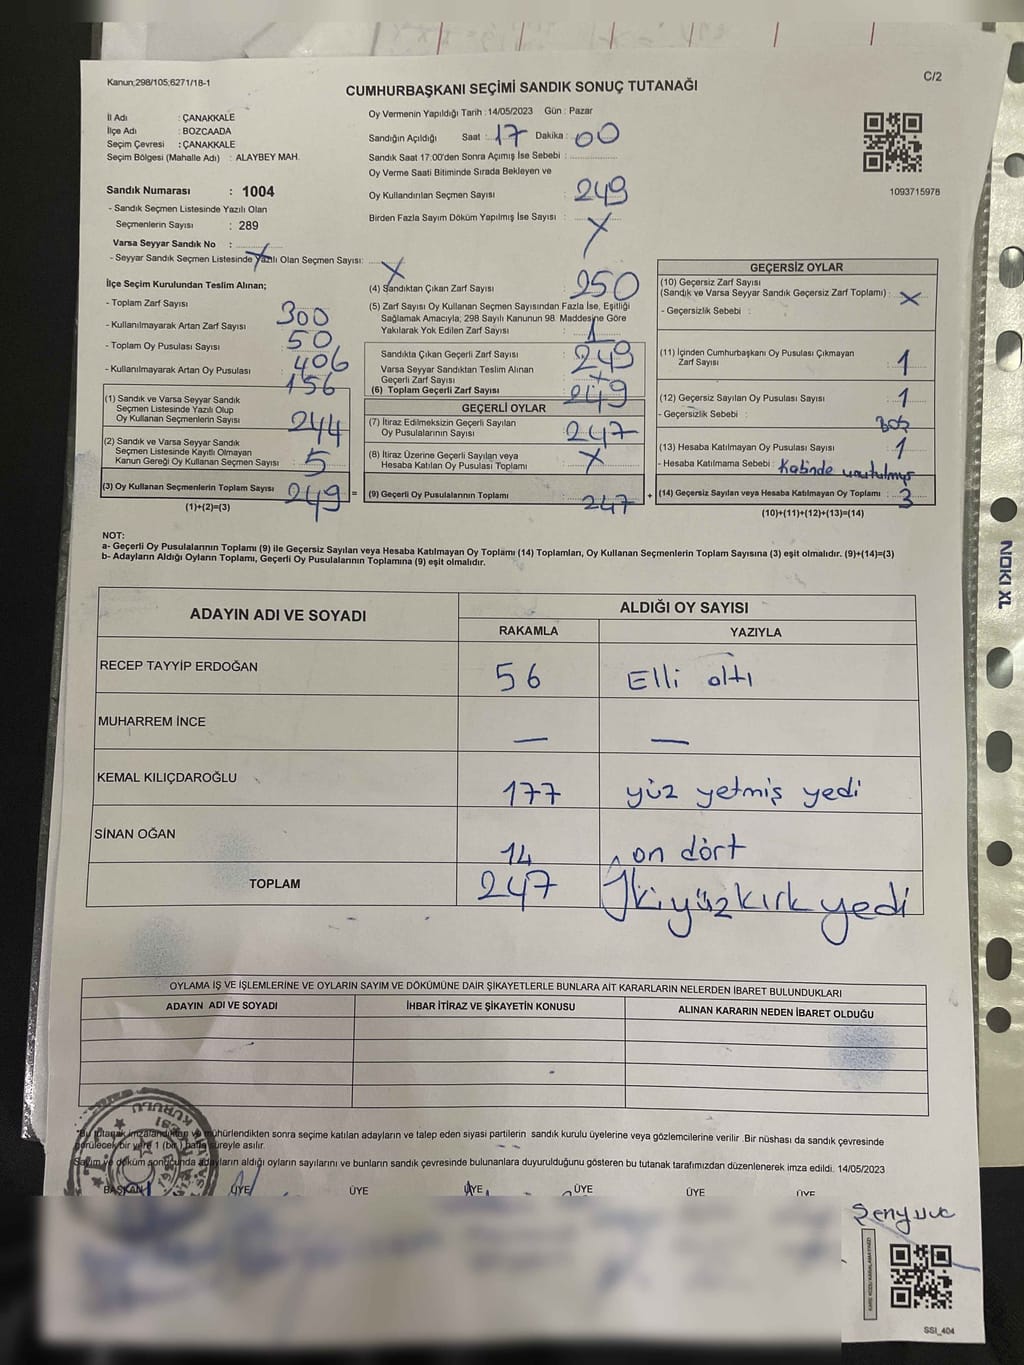 Kanun;298/105;6271/18-1
C/2
CUMHURBAŞKANI SEÇİMİ SANDIK SONUÇ TUTANAĞI
İl Adı : ÇANAKKALE
İlçe Adı : BOZCAADA
Seçim Çevresi : ÇANAKKALE
Seçim Bölgesi (Mahalle Adı) : ALAYBEY MAH.
Sandık Numarası : 1004
- Sandık Seçmen Listesinde Yazılı Olan
Seçmenlerin Sayısı : 289
Varsa Seyyar Sandık No :
- Seyyar Sandık Seçmen Listesinde Yazılı Olan Seçmen Sayısı: X
Oy Vermenin Yapıldığı Tarih : 14/05/2023 Gün : Pazar
Sandığın Açıldığı Saat : 17 Dakika : 00
Sandık Saat 17:00'den Sonra Açımış İse Sebebi :
Oy Verme Saati Bitiminde Sırada Bekleyen ve
Oy Kullandırılan Seçmen Sayısı : 249
Birden Fazla Sayım Döküm Yapılmış İse Sayısı : X
1093715978
İlçe Seçim Kurulundan Teslim Alınan;
- Toplam Zarf Sayısı 300
- Kullanılmayarak Artan Zarf Sayısı 50
- Toplam Oy Pusulası Sayısı 406
- Kullanılmayarak Artan Oy Pusulası 156
(1) Sandık ve Varsa Seyyar Sandık
Seçmen Listesinde Yazılı Olup
Oy Kullanan Seçmenlerin Sayısı 244
(2) Sandık ve Varsa Seyyar Sandık
Seçmen Listesinde Kayıtlı Olmayan
Kanun Gereği Oy Kullanan Seçmen Sayısı 5
(3) Oy Kullanan Seçmenlerin Toplam Sayısı 249 =
(1)+(2)=(3)
(4) Sandıktan Çıkan Zarf Sayısı : 250
(5) Zarf Sayısı Oy Kullanan Seçmen Sayısından Fazla İse, Eşitliği
Sağlamak Amacıyla; 298 Sayılı Kanunun 98. Maddesine Göre
Yakılarak Yok Edilen Zarf Sayısı : 1
Sandıkta Çıkan Geçerli Zarf Sayısı : 249
Varsa Seyyar Sandıktan Teslim Alınan
Geçerli Zarf Sayısı : X
(6) Toplam Geçerli Zarf Sayısı : 249
GEÇERLİ OYLAR
(7) İtiraz Edilmeksizin Geçerli Sayılan
Oy Pusulalarının Sayısı : 247
(8) İtiraz Üzerine Geçerli Sayılan veya
Hesaba Katılan Oy Pusulası Toplamı : X
(9) Geçerli Oy Pusulalarının Toplamı : 247 +
GEÇERSİZ OYLAR
(10) Geçersiz Zarf Sayısı
(Sandık ve Varsa Seyyar Sandık Geçersiz Zarf Toplamı) : X
- Geçersizlik Sebebi :
(11) İçinden Cumhurbaşkanı Oy Pusulası Çıkmayan
Zarf Sayısı : 1
(12) Geçersiz Sayılan Oy Pusulası Sayısı : 1
- Geçersizlik Sebebi : Boş
(13) Hesaba Katılmayan Oy Pusulası Sayısı : 1
- Hesaba Katılmama Sebebi : Kabinde unutulmuş
(14) Geçersiz Sayılan veya Hesaba Katılmayan Oy Toplamı : 3
(10)+(11)+(12)+(13)=(14)
NOT:
a- Geçerli Oy Pusulalarının Toplamı (9) ile Geçersiz Sayılan veya Hesaba Katılmayan Oy Toplamı (14) Toplamları, Oy Kullanan Seçmenlerin Toplam Sayısına (3) eşit olmalıdır. (9)+(14)=(3)
b- Adayların Aldığı Oyların Toplamı, Geçerli Oy Pusulalarının Toplamına (9) eşit olmalıdır.
ADAYIN ADI VE SOYADI ALDIĞI OY SAYISI
RAKAMLA YAZIYLA
RECEP TAYYİP ERDOĞAN 56 Elli altı
MUHARREM İNCE — —
KEMAL KILIÇDAROĞLU 177 yüz yetmiş yedi
SİNAN OĞAN 14 on dört
TOPLAM 247 İkiyüzkırkyedi
OYLAMA İŞ VE İŞLEMLERİNE VE OYLARIN SAYIM VE DÖKÜMÜNE DAİR ŞİKAYETLERLE BUNLARA AİT KARARLARIN NELERDEN İBARET BULUNDUKLARI
ADAYIN ADI VE SOYADI İHBAR İTİRAZ VE ŞİKAYETİN KONUSU ALINAN KARARIN NEDEN İBARET OLDUĞU
*Bu tutanak imzalandıktan ve mühürlendikten sonra seçime katılan adayların ve talep eden siyasi partilerin sandık kurulu üyelerine veya gözlemcilerine verilir .Bir nüshası da sandık çevresinde
görülecek bir yere 1 (bir ) hafta süreyle asılır.
Sayım ve döküm sonucunda adayların aldığı oyların sayılarını ve bunların sandık çevresinde bulunanlara duyurulduğunu gösteren bu tutanak tarafımızdan düzenlenerek imza edildi. 14/05/2023
BAŞKAN ÜYE ÜYE ÜYE ÜYE ÜYE ÜYE
SSI_404
NOKI XL